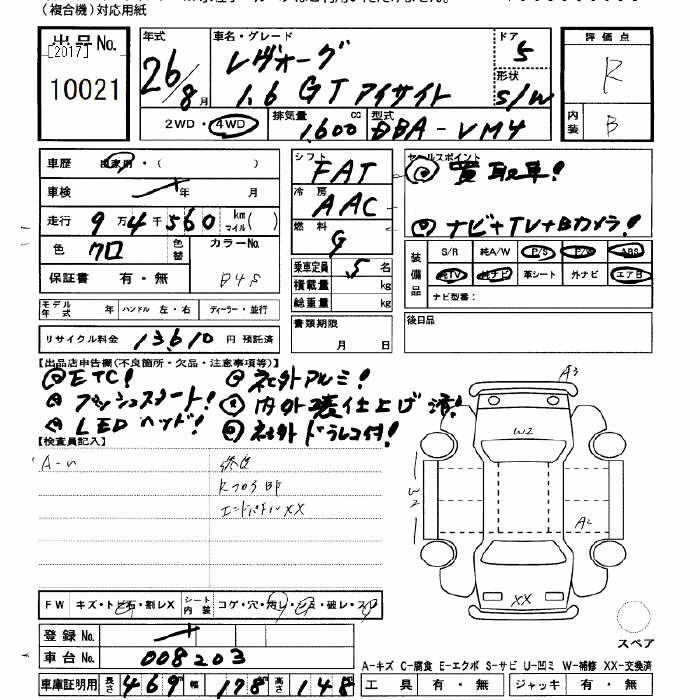 (複合機)対応用紙
出品No. [2017] 10021
年式 26/8月
車名・グレード レヴォーグ 1.6 GT アイサイト
ドア 5
形状 S/W
評価点 R
内装 B
2WD・4WD 排気量 1,600 cc 型式 DBA-VM4
車歴 自家用・( )
車検 年 月
走行 9万4千560 km マイル( )
色 クロ 色替 カラーNo. D4S
保証書 有・無
シフト FAT
冷房 AAC
燃料 G
乗車定員 5名
積載量 kg
総重量 kg
セールスポイント
◎買取車!
◎ナビ+TV+Bカメラ!
装備品 S/R 純A/W P/S P/W ABS
純TV 純ナビ 革シート 外ナビ エアB
ナビ型番:
モデル年式 年 ハンドル 左・右 ディーラー・並行
リサイクル料金 13,610 円 預託済
書類期限 月 日
後日品
【出品店申告欄(不良箇所・欠品・注意事項等)】
◎ETC! ◎社外アルミ!
◎プッシュスタート! ◎内外装仕上げ済!
◎LEDヘッド! ◎社外ドラレコ付!
【検査員記入】
A-U 修復
Rフロア部
エンドパネルXX
A3
W2
W2
A2
XX
FW キズ・トビ石・割レX シート内装 コゲ・穴・汚レ・シミ・破レ・スレ
登録No.
車台No. 008203
車庫証明用 長さ 469 幅 178 高さ 148
スペア
A-キズ C-腐食 E-エクボ S-サビ U-凹ミ W-補修 XX-交換済
工具 有・無 ジャッキ 有・無